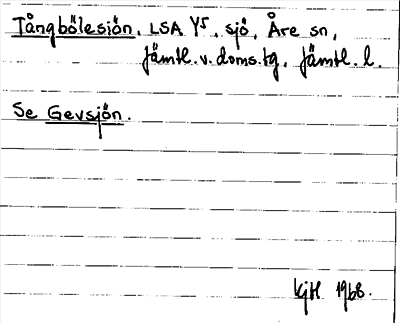 Tångbölesjön, LSA Y5, sjö, Åre sn,
Jämtl. v. doms. tg, Jämtl. l.
Se Gevsjön.
KjH 1968.